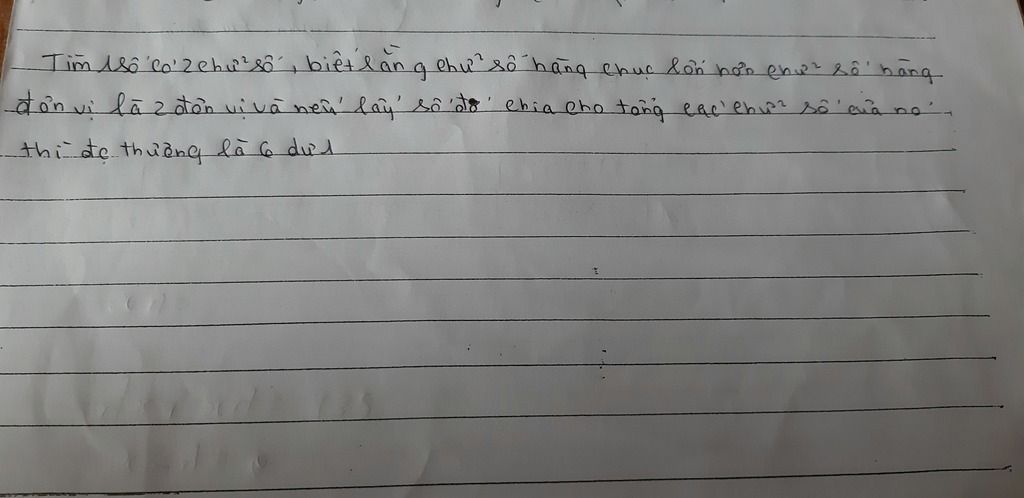 Tìm 1 số có 2 chữ số, biết rằng chữ số hàng chục lớn hơn chữ số hàng
đơn vị là 2 đơn vị và nếu lấy số đó chia cho tổng các chữ số của nó
thì đc thương là 6 dư 1